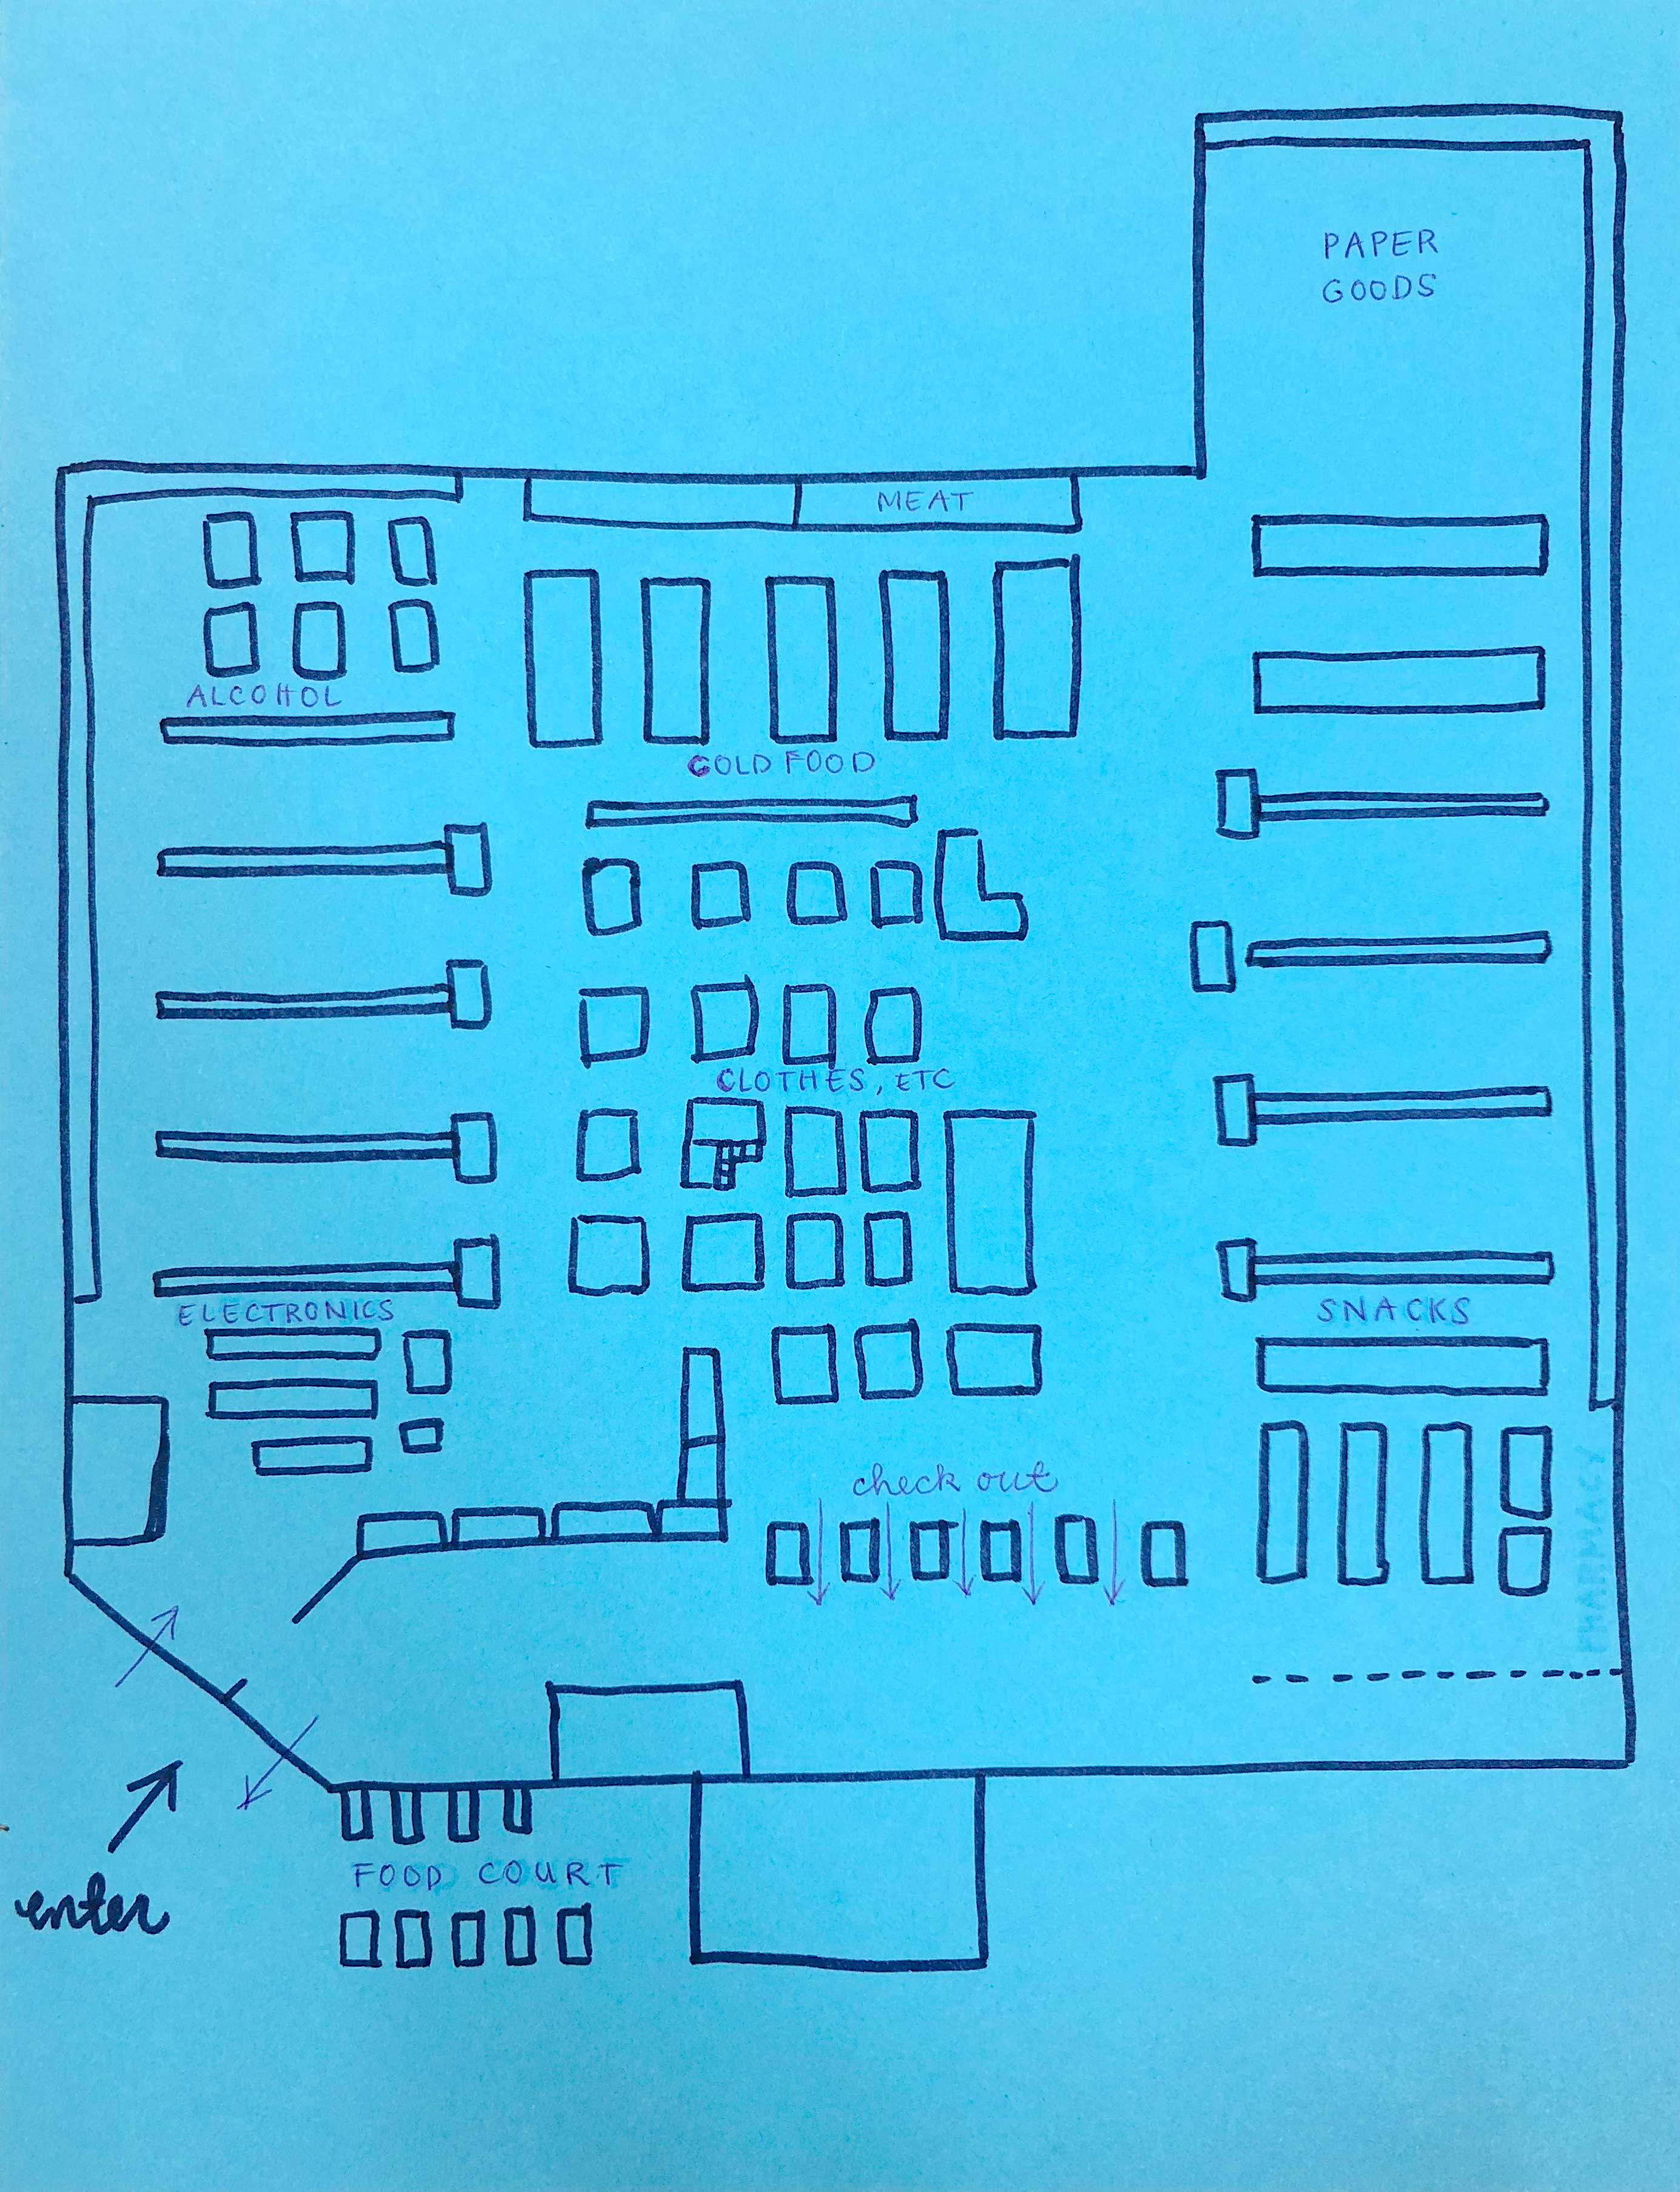 PAPER
GOODS
MEAT
ALCOHOL
COLD FOOD
CLOTHES, ETC
ELECTRONICS
SNACKS
check out
PHARMACY
enter
FOOD COURT